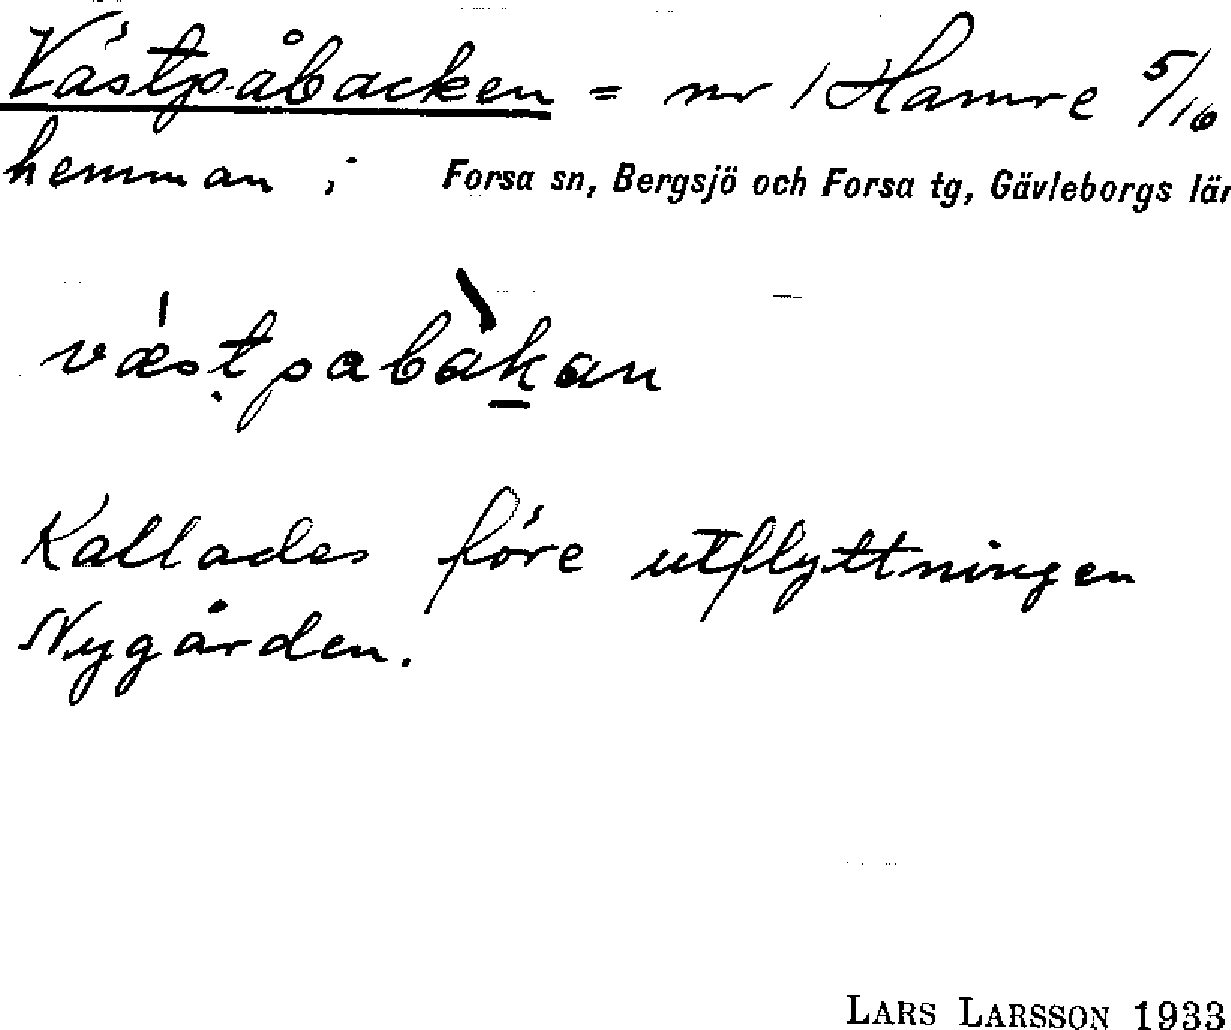 Västpåbacken = nr 1 Hamre 5/16
hemman i Forsa sn, Bergsjö och Forsa tg, Gävleborgs län
væstpabàkan
Kallades före utflyttningen
Nygården.
LARS LARSSON 1933